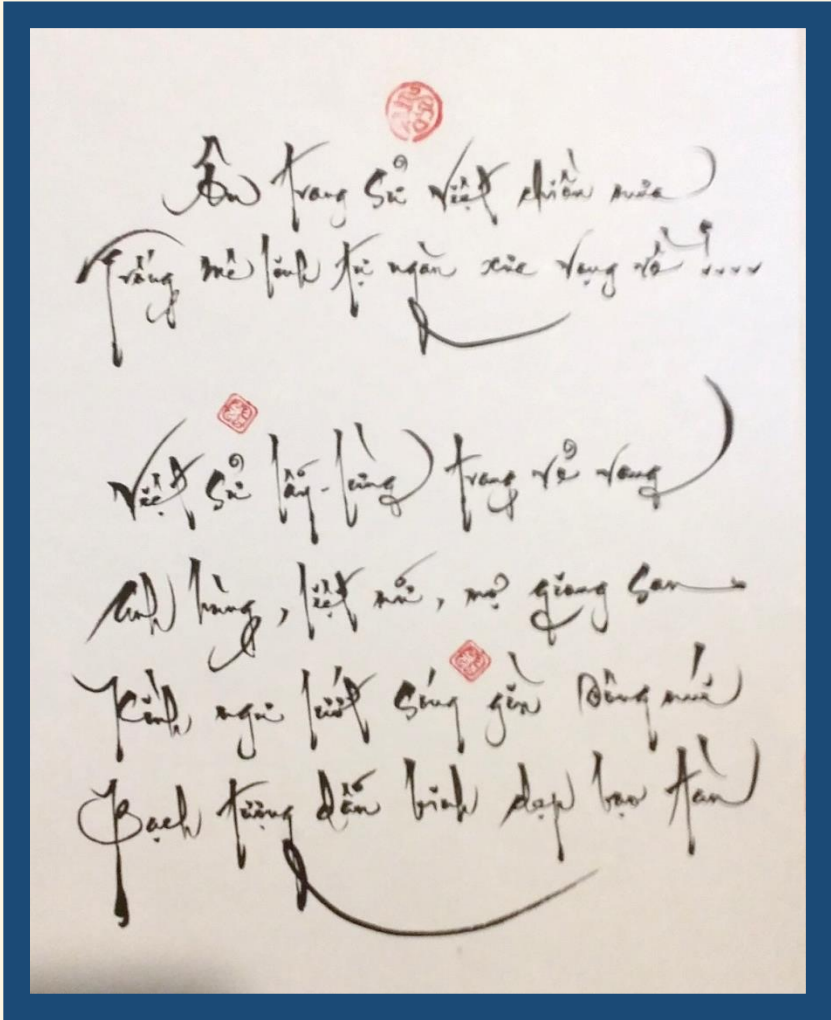 Ôn trang sử Việt chiều mưa
Trống mê linh tự ngàn xưa vọng về !....
Việt sử lẫy-lừng trang vẻ vang
Anh hùng, liệt nữ, mợ giang san
Kình ngư lướt sóng gìn Sông núi
Bạch tượng dấn binh dẹp bạo tàn